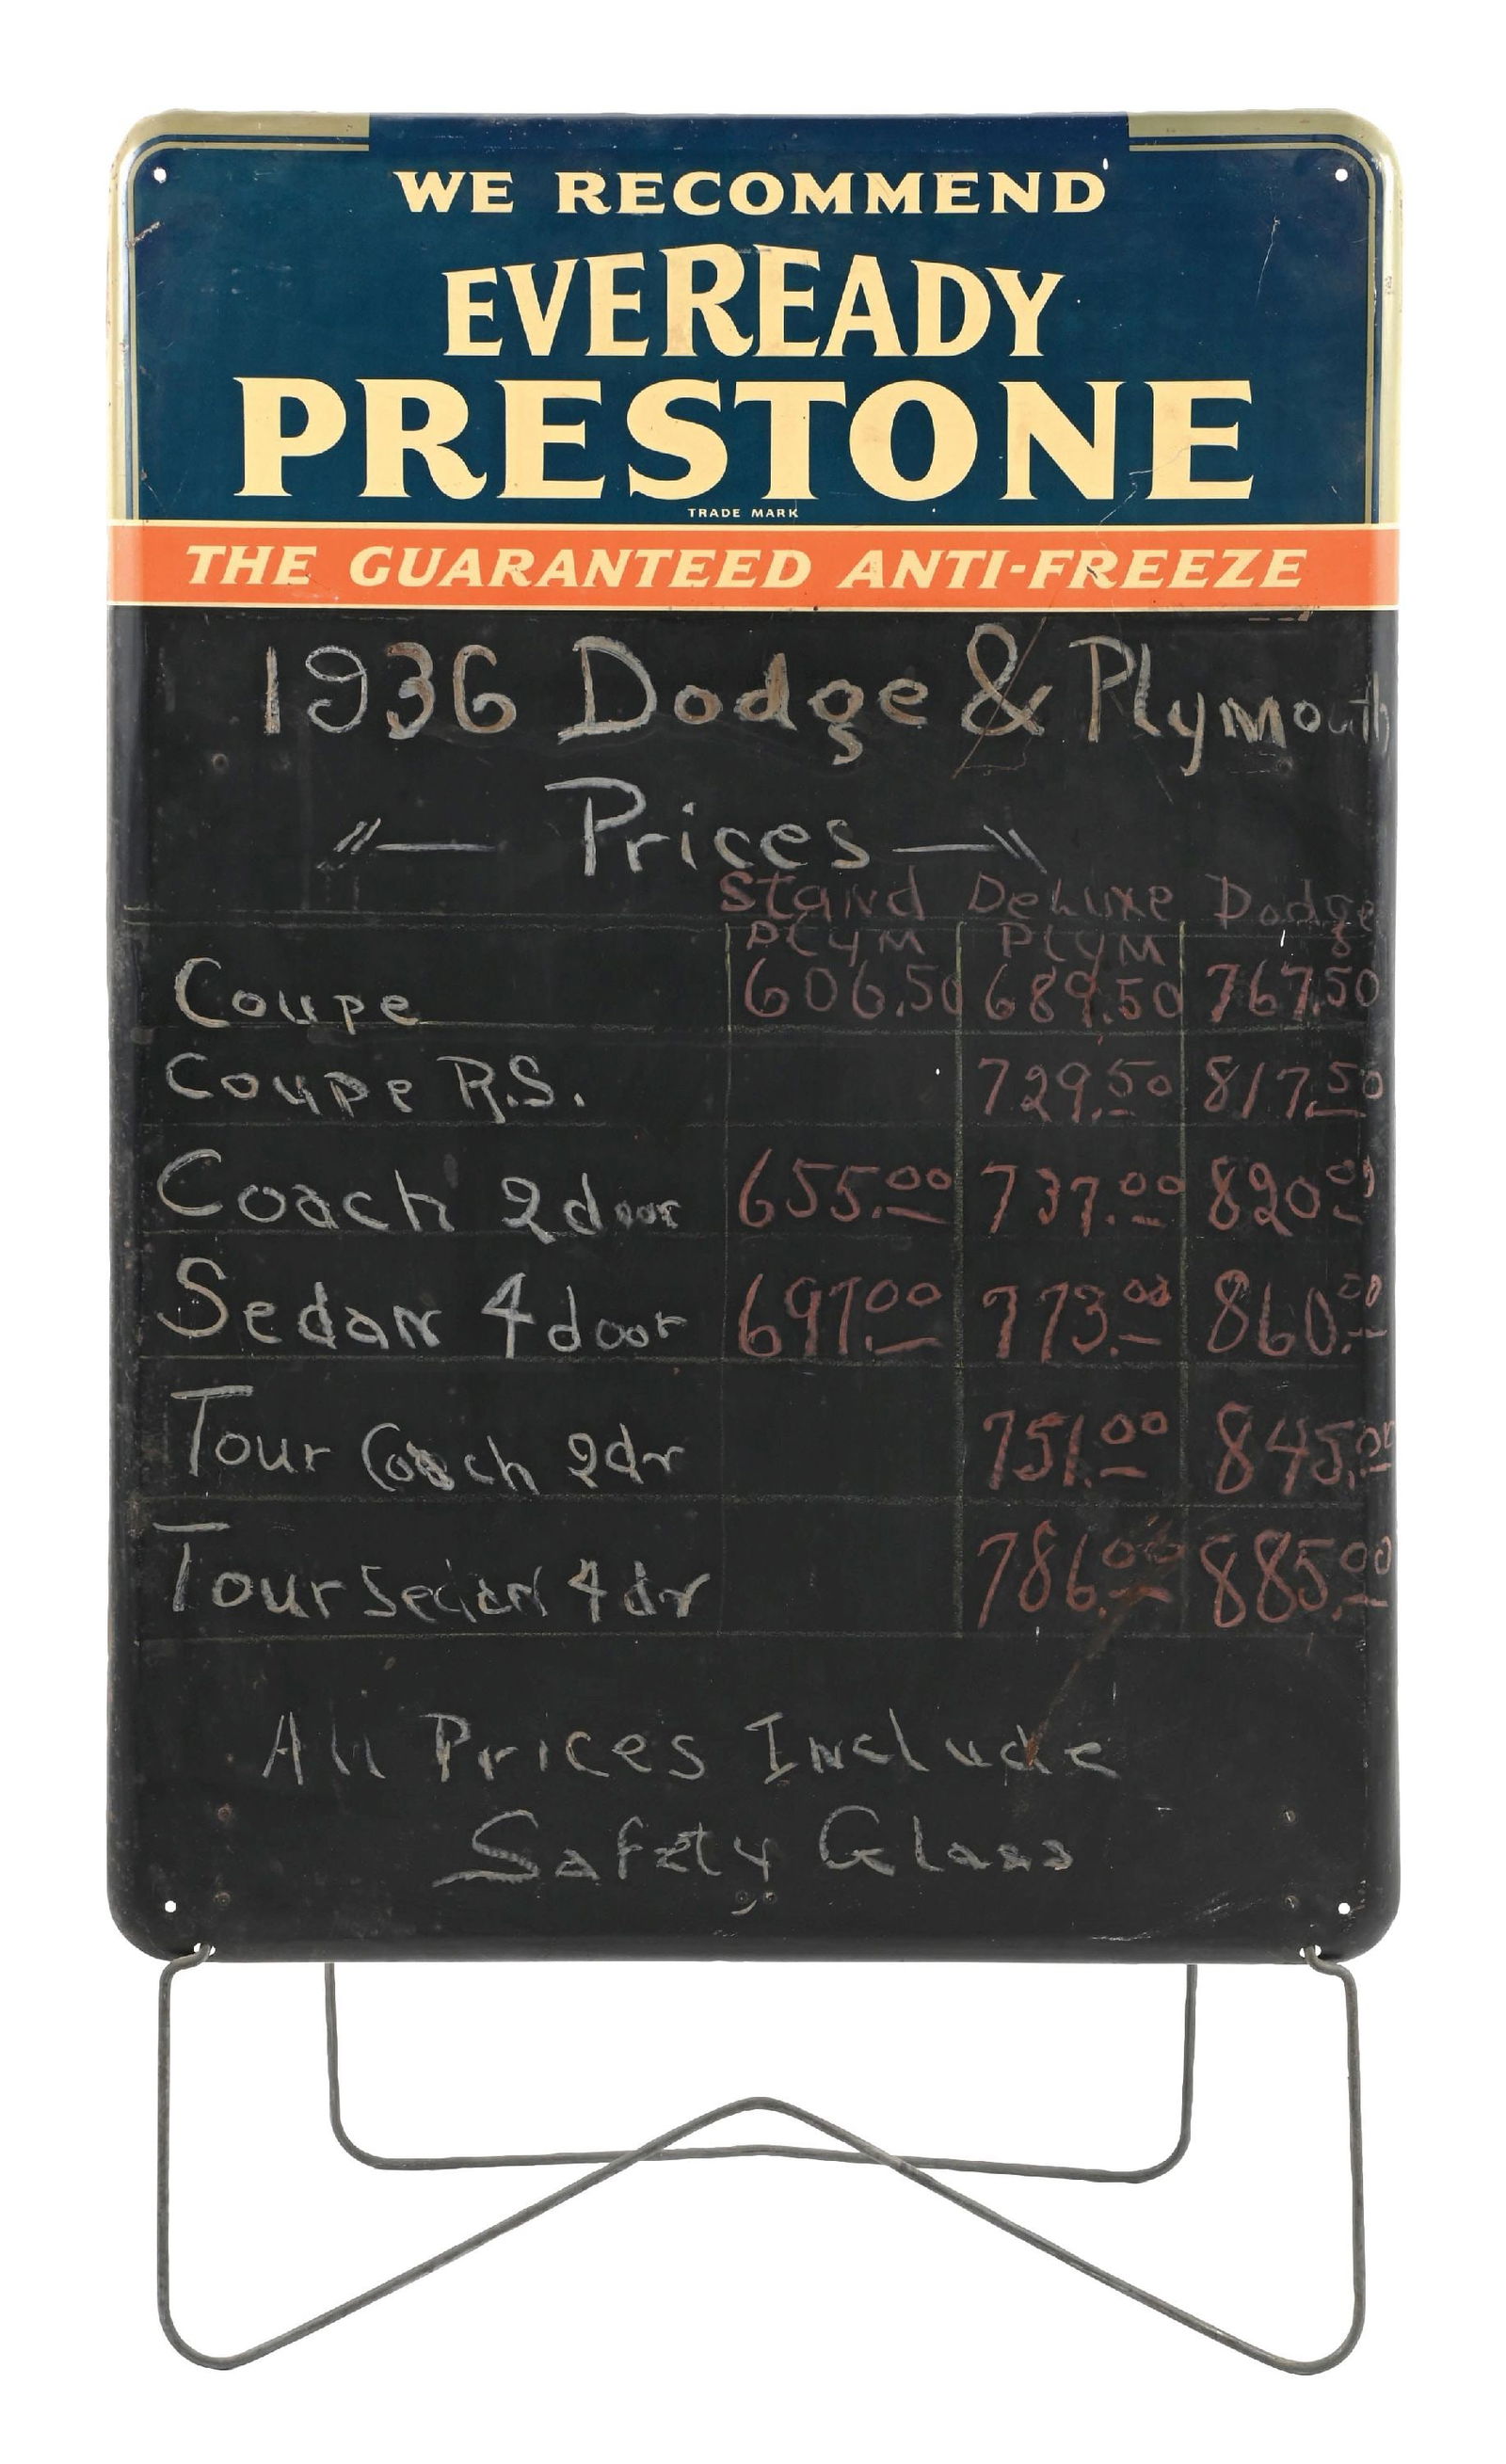 WE RECOMMEND
EVEREADY
PRESTONE
TRADE MARK
THE GUARANTEED ANTI-FREEZE
1936 Dodge & Plymouth
Prices
Stand DeLuxe Dodge
PLYM PLYM 8
Coupe 606.50 689.50 767.50
Coupe R.S. 729.50 817.50
Coach 2door 655.00 737.00 820.00
Sedan 4door 697.00 773.00 860.00
Tour Coach 2dr 751.00 845.00
Tour Sedan 4dr 786.00 885.00
All Prices Include
Safety Glass